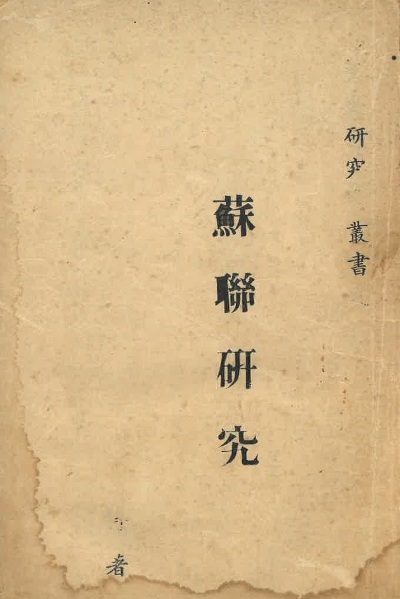 研究 叢書
蘇聯研究
著